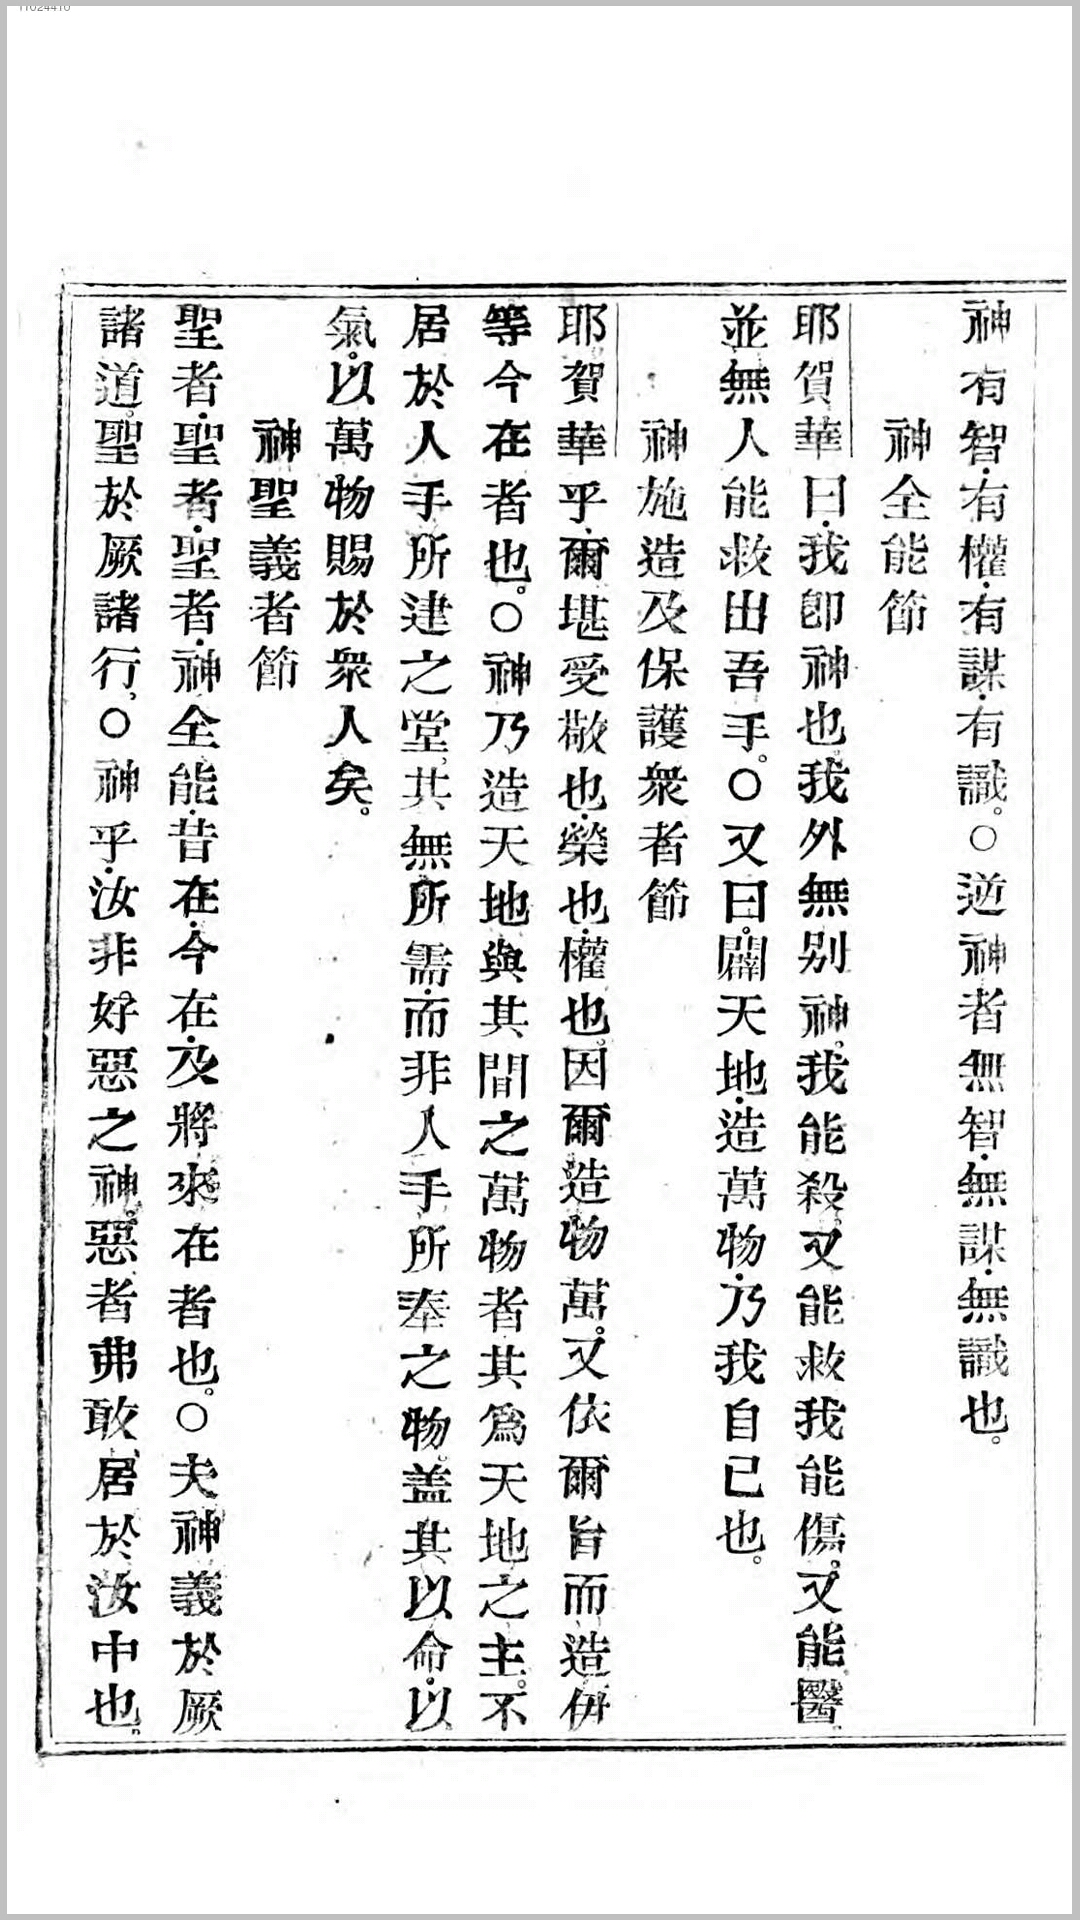 神有智·有權·有謀·有識。○逆神者無智·無謀·無識也。
神全能節
耶賀華曰·我卽神也。我外無別神。我能殺。又能救我能傷。又能醫。
並無人能救出吾手。○又曰。闢天地·造萬物·乃我自己也。
神施造及保護衆者節
耶賀華乎·爾堪受敬也·榮也·權也。因爾造物萬。又依爾旨而造伊
等今在者也。○神乃造天地與其間之萬物者其爲天地之主。不
居於人手所建之堂。其無所需·而非人手所奉之物。盖其以命·以
氣。以萬物賜於衆人矣。
神聖義者節
聖者·聖者·聖者·神全能·昔在·今在·及將來在者也。○夫神義於厥
諸道。聖於厥諸行。○神乎·汝非好惡之神。惡者弗敢居於汝中也。